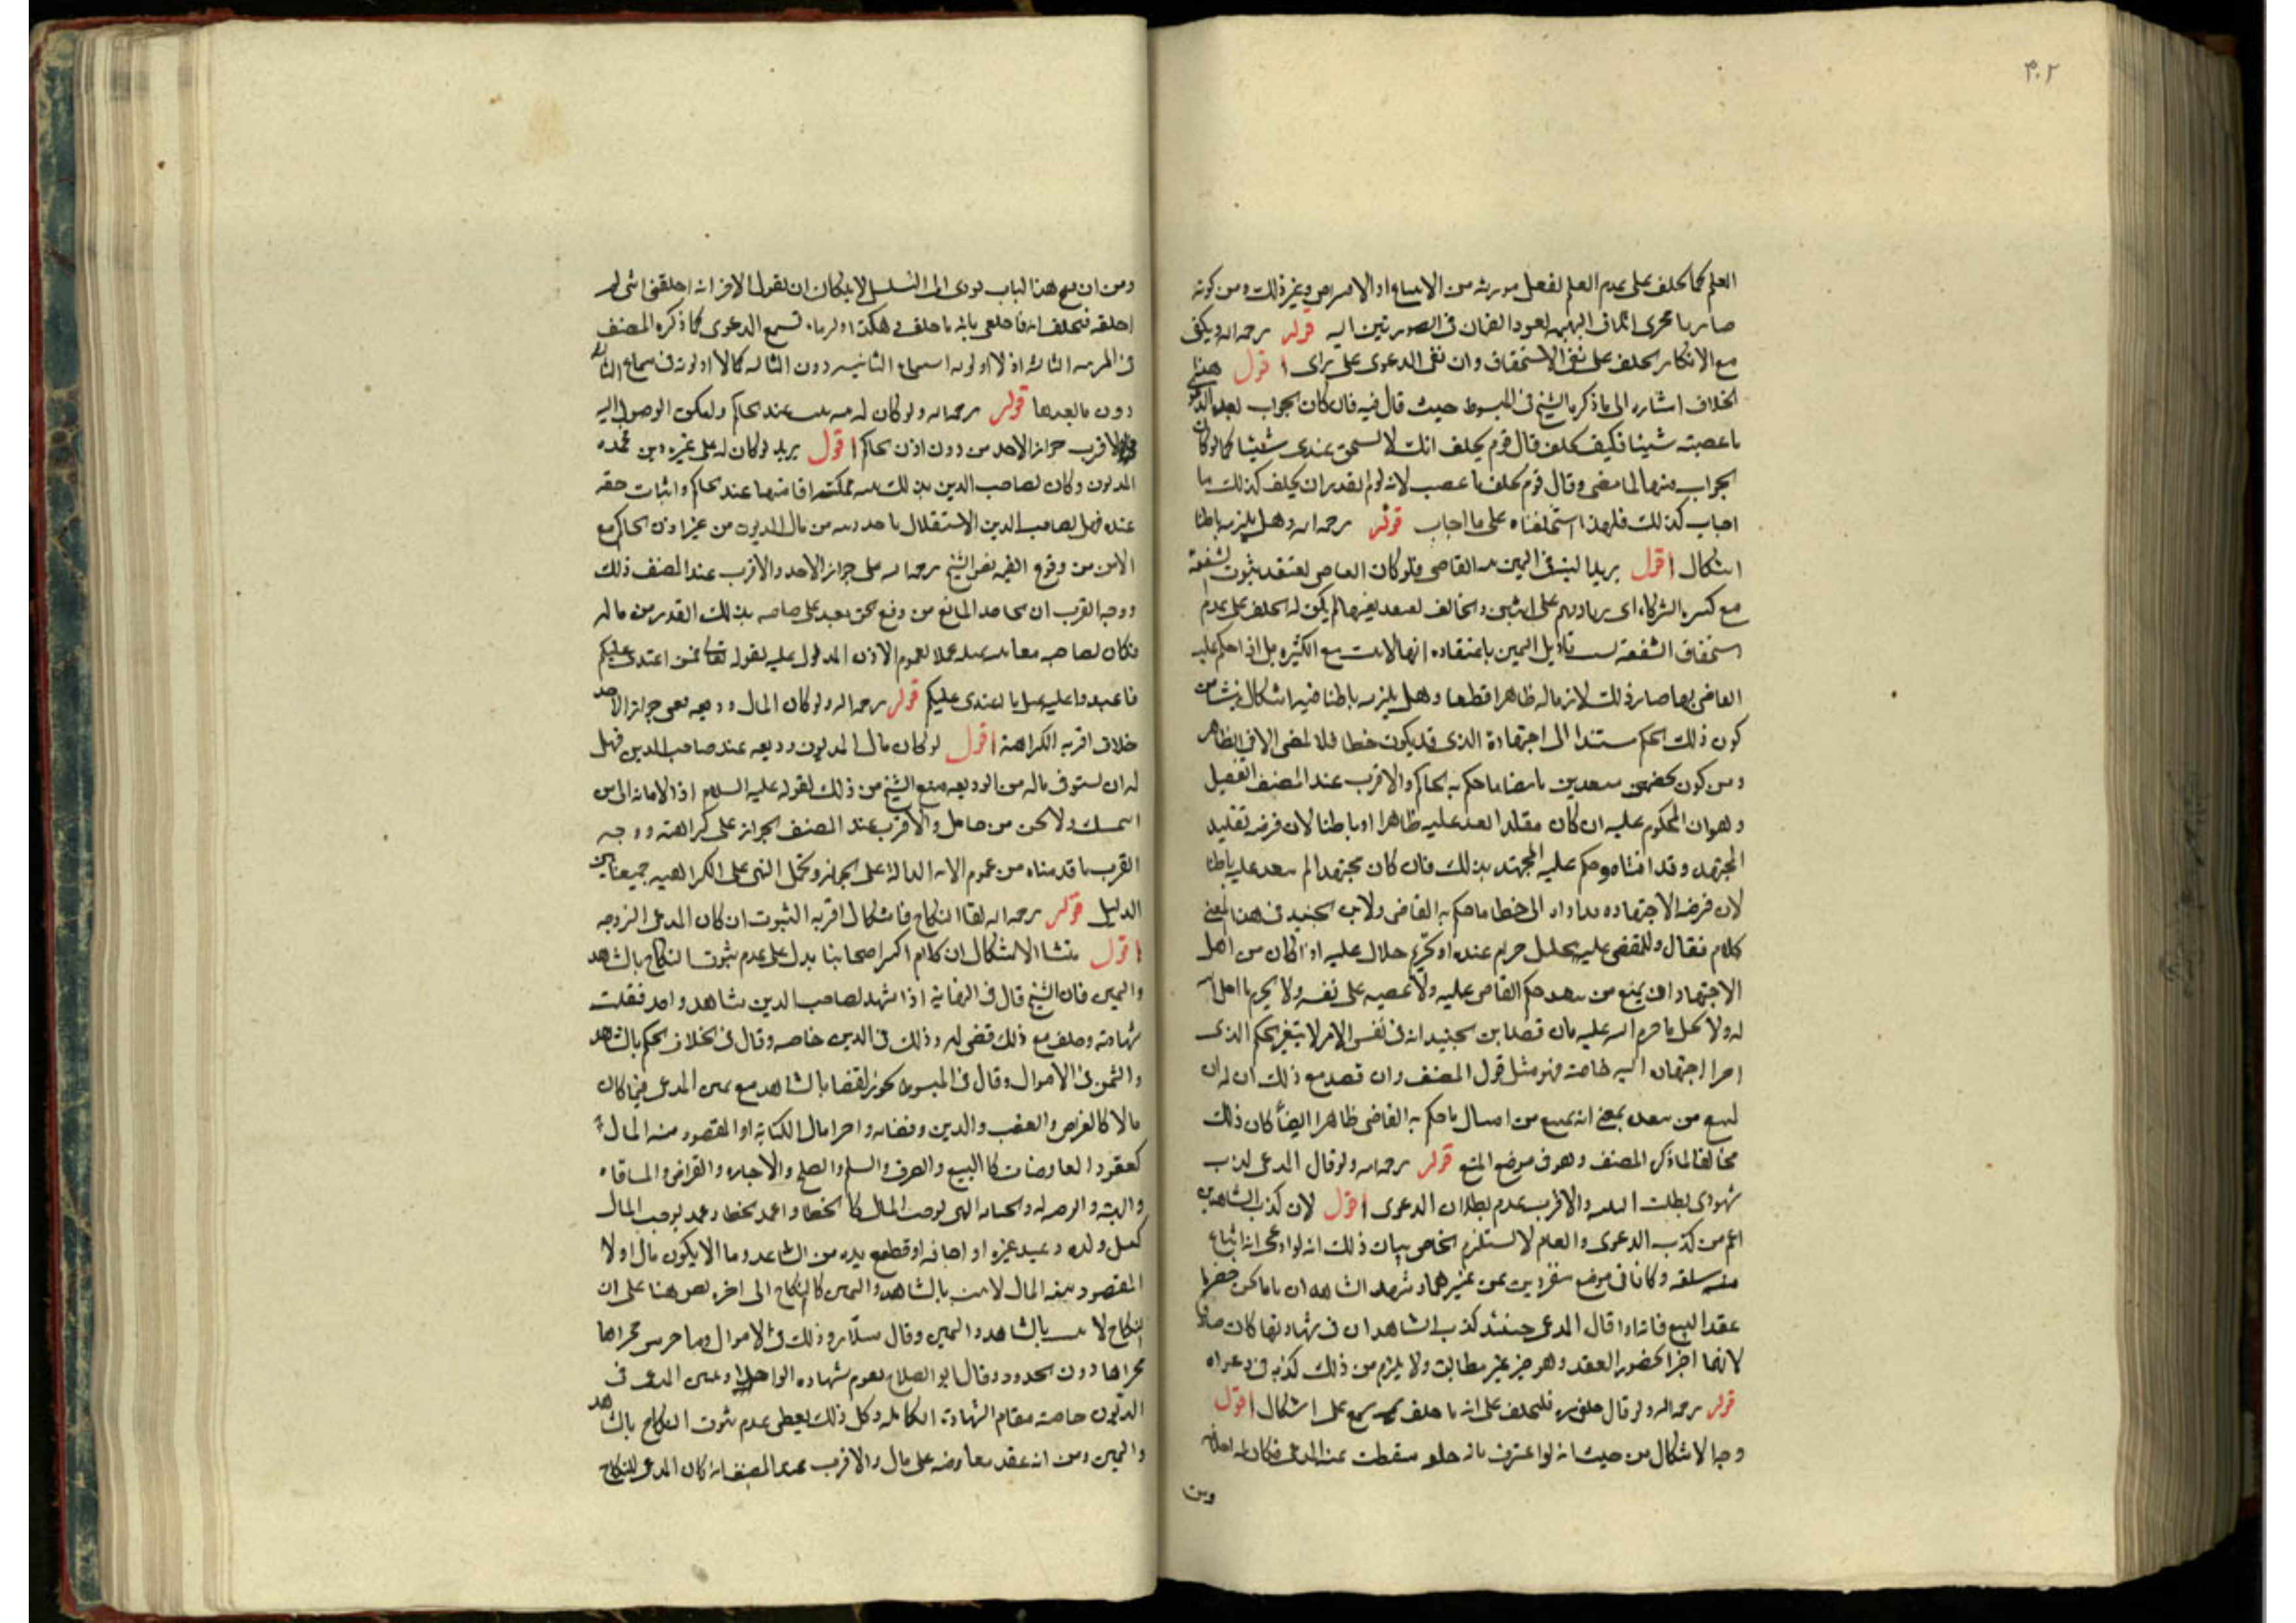 ٣٠٢
العلم كما يحلف على عدم العلم لفعل مورثه من الاتساع او الاقراض وغير ذلك ومن كونه
صار ما مجرى العود الضمان فى الصورتين اليه قوله رحمه اله ويكفى
مع الانكار الحلف على نفى الاستحقاق وان نفى الدعوى على راى اقول هنا
الخلاف اشاره الى ما ذكره الشيخ فى المبسوط حيث قال فيه فان كان الجواب
ما غصبته شيئا فكيف يحلف قال قوم يحلف انك لا تستحق عندى شيئا كما لو كان
الجواب وقال قوم يحلف ما غصب لانه لو لم يقدر ان يحلف كذلك ما
اجاب كذلك فلهذا استحلفناه على ما اجاب قوله رحمه اله وهل يلزمه باطنا
اشكال اقول يريد النية فى اليمين القاضى فلو كان القاضى يعتقد ثبوت الشفعة
مع كثره الشركاء اى زيادتهم على اثنين والحالف لم يكن له الحلف على عدم
استحقاق الشفعة تاويل اليمين باعتقاده انها لا تثبت مع الكثره بل اذا حكم عليه
القاضى بها صار ذلك لازما له ظاهرا قطعا وهل يلزمه باطنا فيه اشكال ينشا من
كون ذلك الحكم مستندا الى اجتهاده الذى قد يكون خطا فلا الا فى الظاهر
ومن كون ما حكم به الحاكم والاقرب عند المصنف التفصيل
وهو ان المحكوم عليه ان كان مقلدا عليه ظاهرا وباطنا لان فرضه تقليد
المجتهد وقد حكم عليه المجتهد بذلك فان كان مجتهدا لم عليه باطنا
لان فرضه الاجتهاد الى خطا ما حكم به القاضى ولابن الجنيد فى هذا المعنى
كلام فقال وللمقضى عليه بتحليل حرام عنده او تحريم حلال عليه اذا كان من اهل
الاجتهاد ان يمنع من حكم القاضى عليه ولا على نفسه ولا يحرم ما احل اله
له ولا يحل ما حرم اله عليه فان قصد ابن الجنيد انه فى نفس الامر لا يتغير الحكم الذى
اجتهاده اليه خاصة فهو مثل قول المصنف وان قصد مع ذلك ان له ان
يمنع من بمعنى انه يمنع من امتثال ما حكم به القاضى ظاهرا ايضا كان ذلك
مخالفا لما ذكره المصنف وهو فى موضع المنع قوله رحمه اله ولو قال المدعى كذب
شهودى بطلت البينه والاقرب عدم بطلان الدعوى اقول لان كذب الشاهدين
اعم من كذب الدعوى والعام لا يستلزم الخاص بيان ذلك انه لو ادعى انه ابتاع
منه سلعه وكانا فى موضع منفردين عن غيرهما وشهد الشاهدان
عقد البيع فاذا قال المدعى حينئذ كذب الشاهدان فى شهادتهما كان صادقا
لانهما اخبرا بحضور العقد وهو خبر غير مطابق ولا يلزم من ذلك كذبه فى دعواه
قوله رحمه اله ولو قال حلفنى فليحلف على انه ما حلف يسمع على اشكال اقول
وجه الاشكال من حيث انه لو اعترف بانه حلف سقطت عنه الدعوى فكان له احلافه
ومن
ومن ان فتح هذا الباب يودى الى التسلسل لامكان ان يقول الاخر انه احلفنى انى لم
احلفه فيحلف انه ما حلفنى بانه ما حلف وهكذا تسمع الدعوى كما ذكره المصنف
فى المرتبه الثالثه اذ لا اولويه استماع الثانيه دون الثالثه كما لا اولويه فى سماع الثالثه
دون ما بعدها قوله رحمه اله ولو كان له بينه عند الحاكم وامكن الوصول اليه
فالاقرب جواز الاخذ من دون اذن الحاكم اقول يريد لو كان له على غيره دين فجحده
المديون وكان لصاحب الدين بذلك بينه يمكنه اقامتها عند الحاكم واثبات حقه
عنده فهل لصاحب الدين الاستقلال باخذ دينه من مال المديون من غير اذن الحاكم مع
الامن من وقوع الفتنه نص الشيخ رحمه اله على جواز الاخذ والاقرب عند المصنف ذلك
ووجه القرب ان المانع من دفع الحق على صاحبه بذلك القدر من ماله
فكان لصاحبه عملا بعموم الاذن المدلول عليه بقوله تعالى فمن اعتدى عليكم
فاعتدوا عليه بمثل ما اعتدى عليكم قوله رحمه اله ولو كان المال وديعه ففى جواز الاخذ
خلاف اقربه الكراهة اقول لو كان مال المديون وديعه عند صاحب الدين فهل
له ان يستوفى ماله من الوديعه منع الشيخ من ذلك لقوله عليه السلام اد الامانه الى من
ائتمنك ولا تخن من خانك والاقرب عند المصنف الجواز على كراهته ووجه
القرب ما قدمناه من عموم الايه الدالة على الجواز ويحمل النهى على الكراهيه جمعا بين
الدليل قوله رحمه اله اما النكاح فاشكال اقربه الثبوت ان كان المدعى الزوجه
اقول منشا الاشكال ان كلام اكثر اصحابنا يدل على عدم ثبوت النكاح بالشاهد
واليمين فان الشيخ قال فى النهاية اذا شهد لصاحب الدين شاهد واحد قبلت
شهادته وحلف مع ذلك قضى له وذلك فى الدين خاصه وقال فى الخلاف يحكم بالشاهد
واليمين فى الاموال وقال فى المبسوط يجوز القضا بالشاهد مع يمين المدعى فيما كان
مالا كالقرض والغصب والدين وقضائه واخر مال الكتابة او المقصود منه المال
كعقود المعاوضات كالبيع والصرف والسلم والصلح والاجاره والقراض والمساقاه
والهبة والوصيه والجنايه التى توجب المال كالخطا وعمد الخطا وعمد يوجب المال
كقتل ولده وعبد غيره او اجافه او قطع يده من الساعد وما لا يكون مال ولا
المقصود منه المال لا يثبت بالشاهد واليمين كالنكاح الى اخره نص هنا على ان
النكاح لا يثبت بالشاهد واليمين وقال سلار وذلك فى الاموال وما جرى مجراها
مجراها دون الحدود وقال ابو الصلاح يقوم شهاده الواحد ويمين المدعى فى
الديون خاصة مقام الشهادة الكامله وكل ذلك يعطى عدم ثبوت النكاح بالشاهد
واليمين ومن انه عقد معاوضه على مال والاقرب عند المصنف انه كان المدعى للنكاح